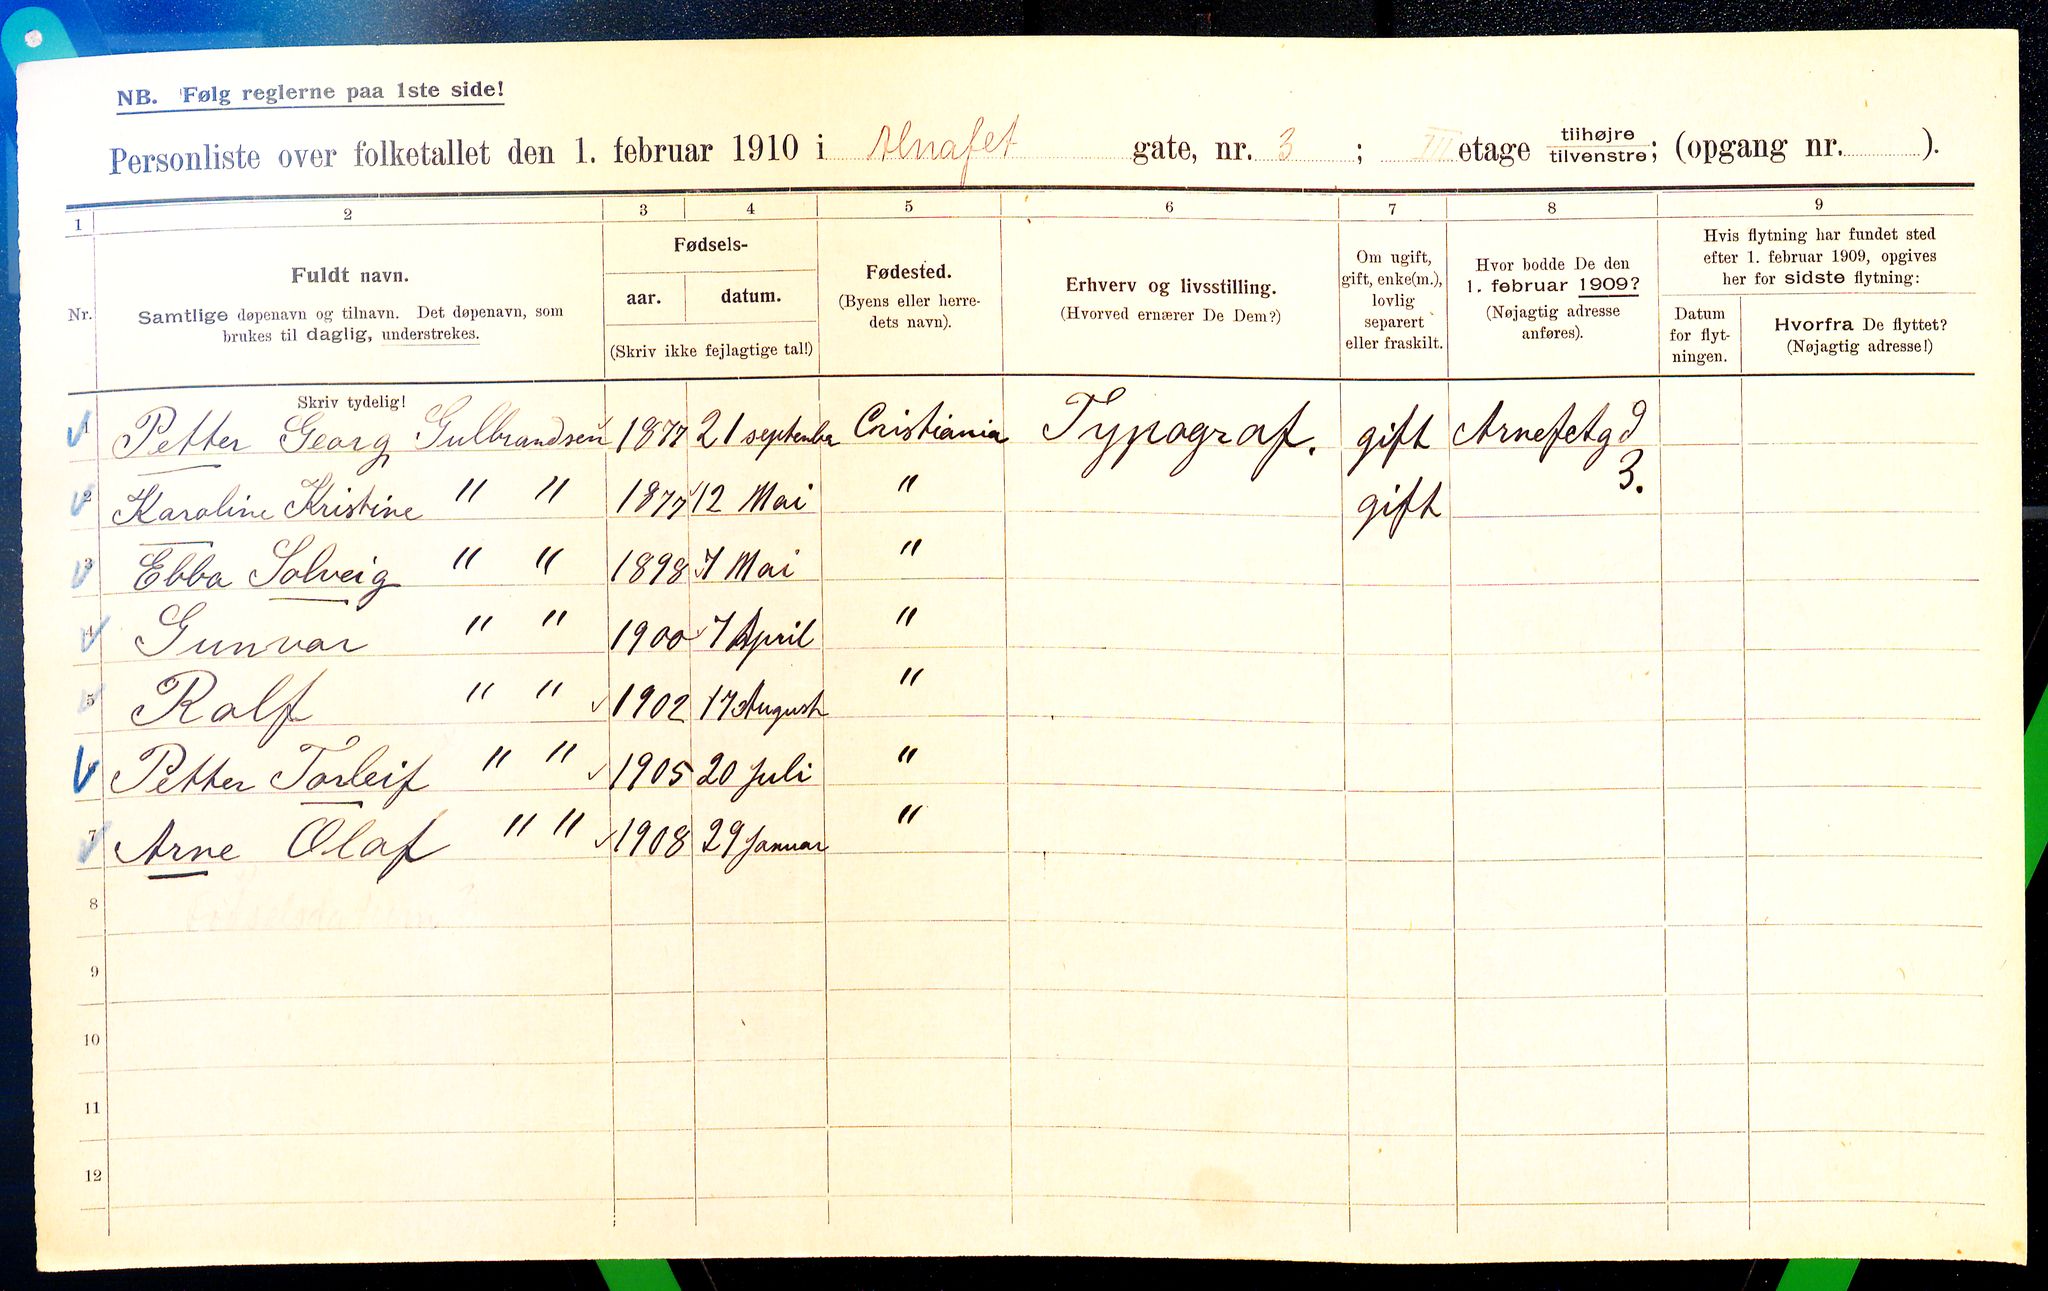 NB. Følg reglerne paa 1ste side!
Personliste over folketallet den 1. februar 1910 i Alnafet gate, nr. 3 ; III etage tilhøjre tilvenstre; (opgang nr. ).
1 2 3 4 5 6 7 8 9
Nr.
Fuldt navn.
Samtlige døpenavn og tilnavn. Det døpenavn, som
brukes til daglig, understrekes.
Fødsels-
aar. datum.
(Skriv ikke fejlagtige tal!)
Fødested.
(Byens eller herre-
dets navn).
Erhverv og livsstilling.
(Hvorved ernærer De Dem?)
Om ugift,
gift, enke(m.),
lovlig
separert
eller fraskilt.
Hvor bodde De den
1. februar 1909?
(Nøjagtig adresse
anføres).
Hvis flytning har fundet sted
efter 1. februar 1909, opgives
her for sidste flytning:
Datum
for flyt-
ningen.
Hvorfra De flyttet?
(Nøjagtig adresse!)
Skriv tydelig!
1 Petter Georg Gulbrandsen 1877 21 septenber Cristiania Typograf. gift Arnefetgd
3.
2 Karoline Kristine " " 1877 12 Mai " gift
3 Ebba Solveig " " 1898 7 Mai "
4 Gunvar " " 1900 7 April "
5 Ralf " " 1902 17 August "
6 Petter Torleif " " 1905 20 Juli "
7 Arne Olaf " " 1908 29 Januar "
8 Fødselsdatum
9
10
11
12